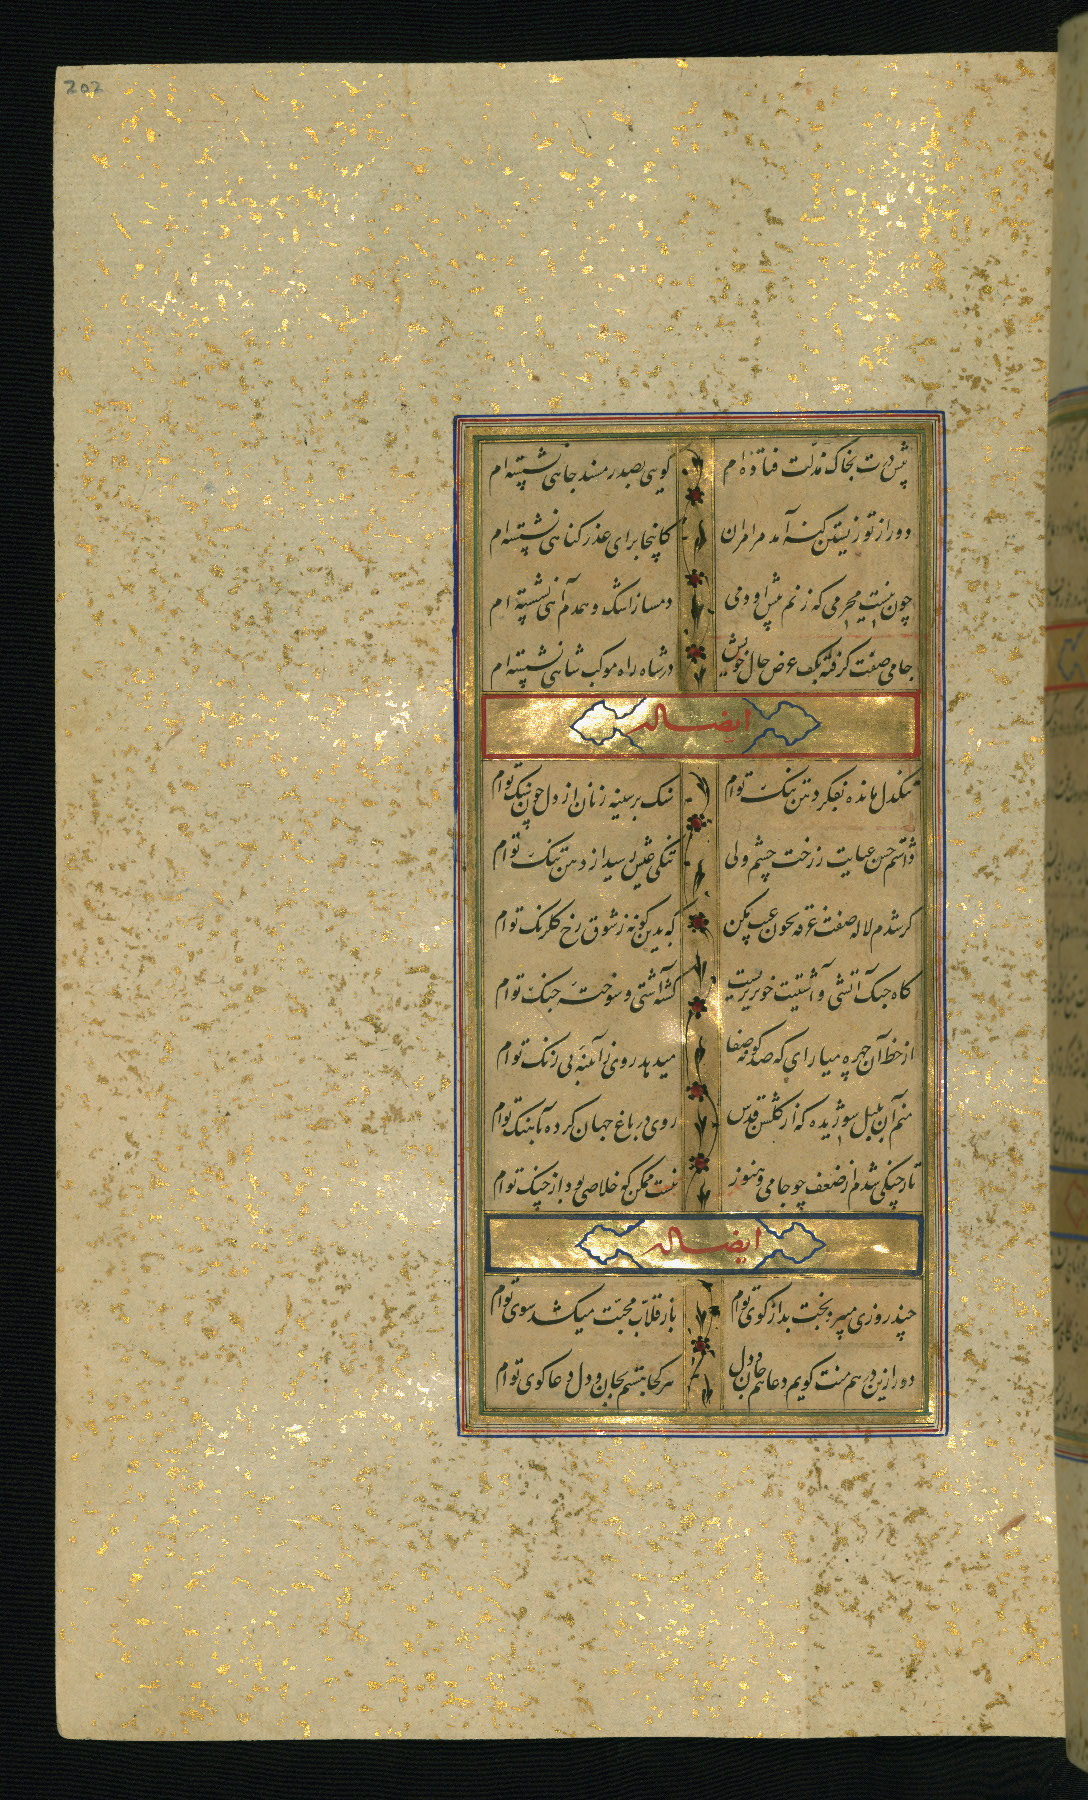 202
پیش درت بخاک مذلت فتاده ام گویی بصدر مسند جاهی نشسته ام
دور از تو زیستن کنه آمد مرا مران کاینجا برای عذر کناهی نشسته ام
چون نیست محرمی که زنم پیش او دمی دمساز اشک و همدم آهی نشسته ام
جامی صفت کرفته بکف عرض حال خویش در شاه راه موکب شاهی نشسته ام
ایضا له
تنکدل مانده بفکر دهن تنک توام سنک بر سینه زنان از دل چون سنک توام
داشتم حسن عنایت ز رخت چشم ولی تنکی عیش رسید از دهن تنک توام
کر شدم لاله صفت غرقه بخون عیب مکن که بدین کونه ز شوق رخ کلرنک توام
کاه جنک آتشی و آشتیت خونریزیست کشته آشتی و سوخته جنک توام
از خط آن چهره میارای که صد کونه صفا میدهد روی ز آئینه بی زنک توام
منم آن بلبل شوریده که از کلشن قدس روی در باغ جهان کرده بآهنک توام
تار چنکی شدم از ضعف چو جامی و هنوز نیست ممکن که خلاصی بود از چنک توام
ایضا له
چند روزی میبرد بخت بد از کوی توام باز قلاب محبت میکشد سوی توام
دور ازین در هم منت کویم دعا هم جان و دل هر کجا هستم بجان و دل دعا کوی توام